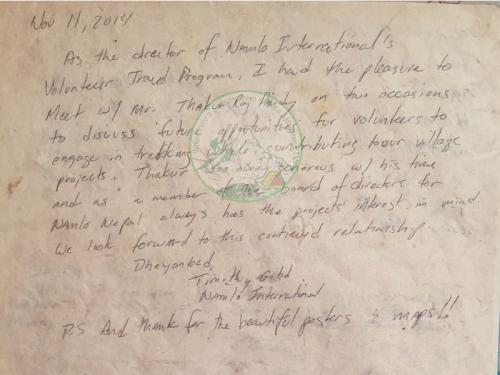 Nov 11, 2014
As the director of Namlo International's
Volunteer Travel Program, I had the pleasure to
Meet w/ Mr. Thakur Raj Pandy on two occasions
to discuss future opportunities for volunteers to
engage in trekking while contributing to our village
projects. Thakur was very generous w/ his time
and as a member of the board of directors for
Namlo Nepal always has the projects' interest in mind
We look forward to this continued relationship
Timothy
Namlo International
P.S And thank for the beautiful posters & maps!!